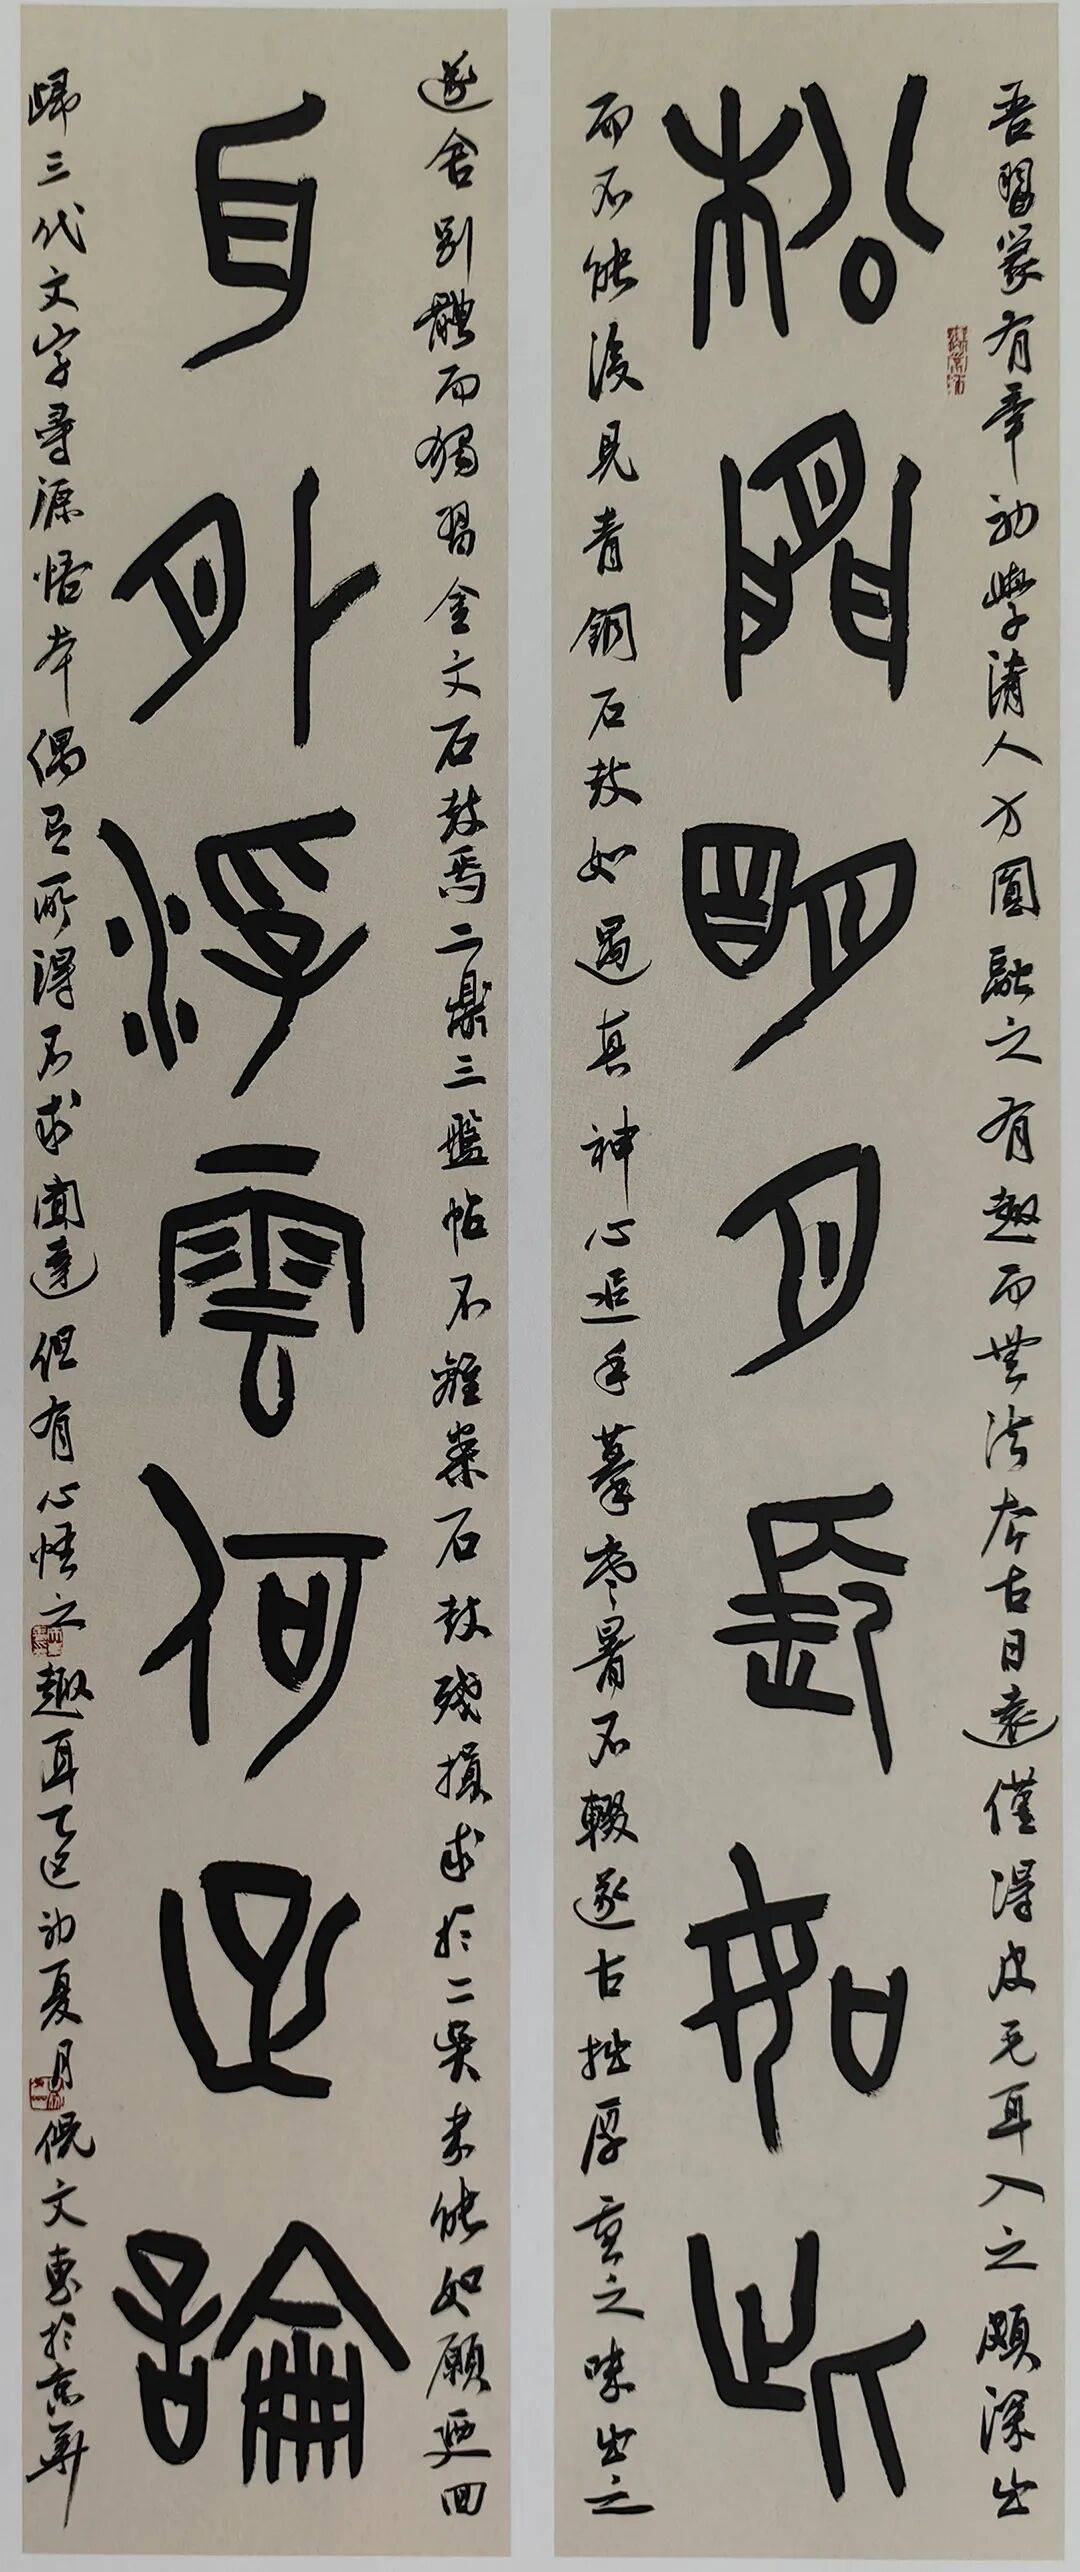 吾習篆有年初學清人方圓融之有趣而無法本古日遠僅得皮毛耳入之頗深出
松間明月長如此
而不能後見青銅石鼓如遇真神心追手摹寒暑不輟遂古拙厚重之味出之
遂舍別體而獨習金文石鼓焉二鼎三盤帖不離案石鼓殘損求於二吳未能如願迺回
身外浮雲何足論
歸三代文字尋源悟本偶有所得不求聞達但有心悟之趣耳乙巳初夏月倪文惠於京華